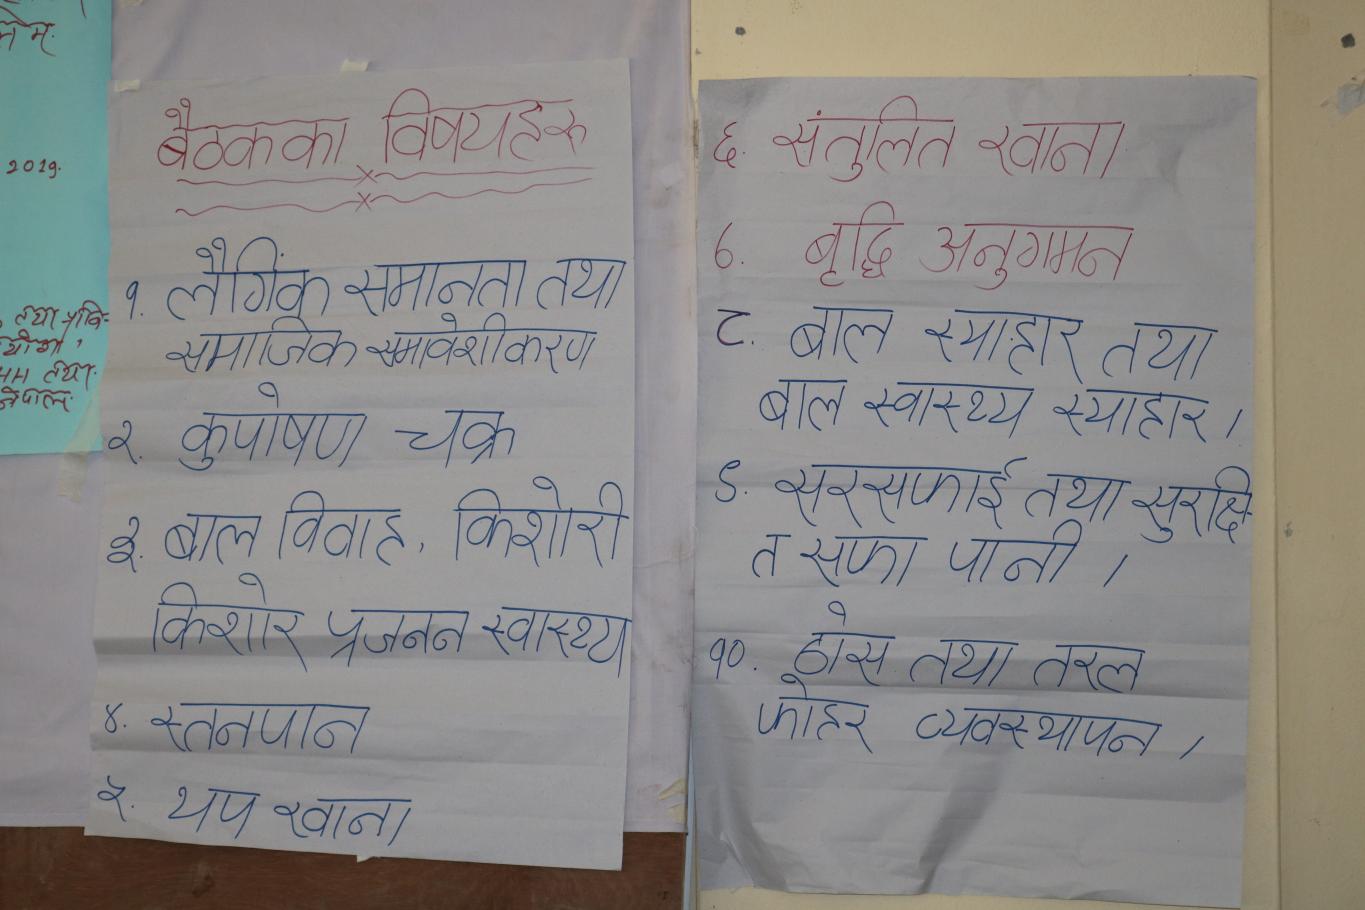 2029.
बैठकका विषयहरू
१. लैगिंक समानता तथा
समाजिक समावेशीकरण
२. कुपोषण चक्र
३. बाल विवाह, किशोरी
किशोर प्रजनन स्वास्थ्य
४. स्तनपान
५. थप खाना
६. संतुलित खाना
७. बृद्धि अनुगमन
८. बाल स्याहार तथा
बाल स्वास्थ्य स्याहार।
९. सरसफाई तथा सुरक्षि-
त सफा पानी ।
१०. ठोस तथा तरल
फोहर व्यवस्थापन ।